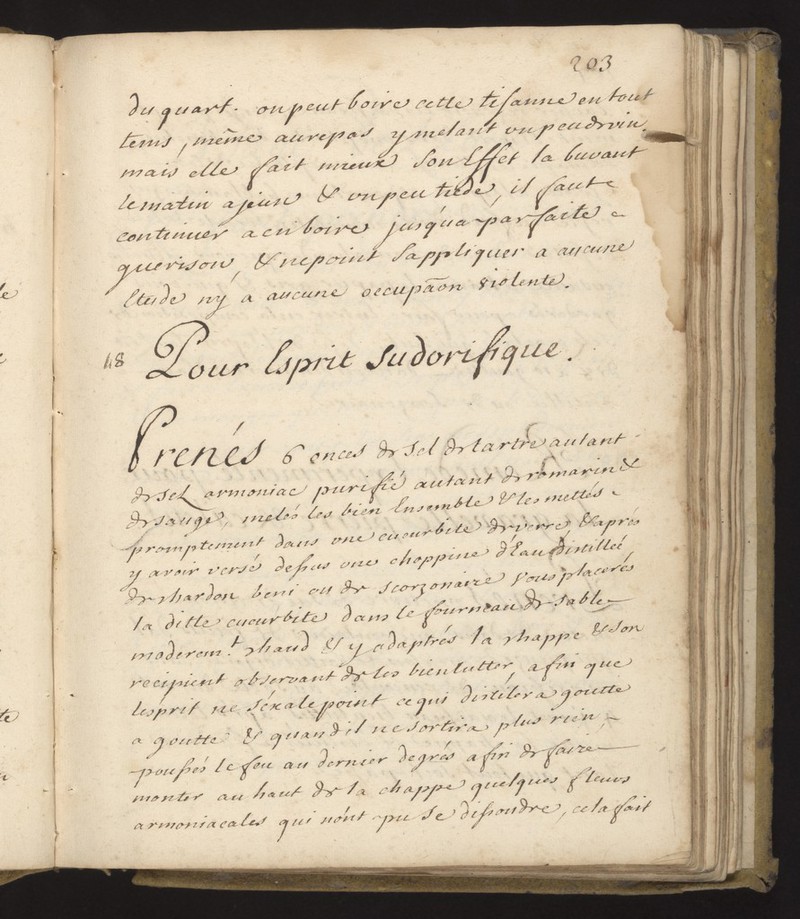 203
du quart. on peut boire cette tisanne en tout
tems, même au repas y melant un peu dvin,
mais elle fait mieux son Effet la buvant
le matin a jeun & un peu tiede, il faut
continuer a en boire jusqua parfaite
guerison, & ne point s'appliquer a aucune
Etude ny a aucune occupaōn violente.
48 Pour Esprit Sudorifique.
Prenés 6 onces de sel de tartre autant
de sel armoniac purifié autant de romarin &
de sauge, melés les bien Ensemble & les mettés
promptement dans une cucurbite de verre & aprés
y avoir versé dessus une choppine d'Eau distilleé
de chardon beni ou de scorzonaire vous placerés
la ditte cucurbite dans le fourneau de sable
moderem.t chaud & y adaptrés la chappe & son
recipient observant de les bien lutter, afin que
lesprit ne s'éxale point ce qui distilera goutte
a goutte & quand il ne sortira plus rien,
poussés le feu au dernier degrés afin de faire
monter au haut de la chappe quelques fleurs
armoniacales qui nont pu se dissoudre, cela fait